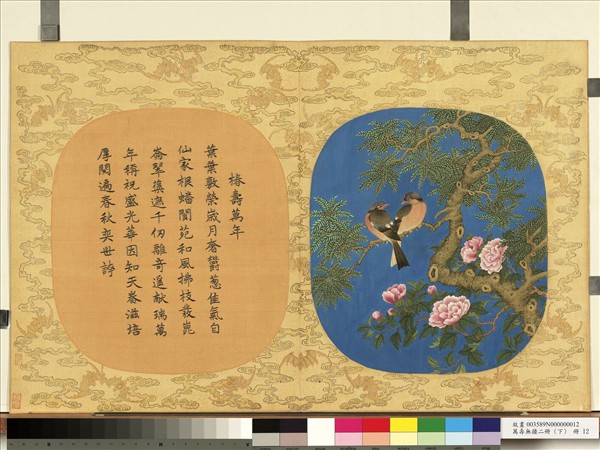 椿壽萬年
葉葉敷榮歲月奢鬱葱佳氣自
仙家根蟠閬苑和風拂枝發崑
崙翠遮千仞離奇遙献瑞萬
年稱祝盛光華因知天眷滋培
厚閱遍春秋奕世誇
故畫 003589N000000012
萬壽無疆二冊（下） 冊 12